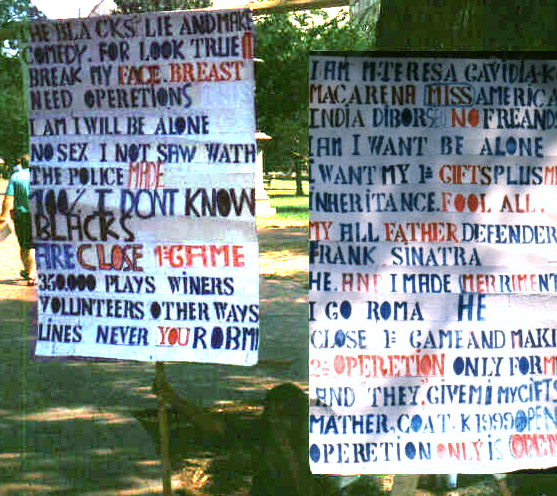 THE BLACKS LIE AND MAKE
COMEDY. FOR LOOK TRUE
BREAK MY FACE BREAST
NEED OPERETIONS
I AM I WILL BE ALONE
NO SEX I NOT SAW WATH
THE POLICE MADE
100% I DONT KNOW
BLACKS
ARE CLOSE 1= GAME
350.000 PLAYS WINERS
VOLLINTEERS OTHER WAYS
LINES NEVER YOU ROBMI
I AM M-TERESA GAVIDIA-K
MACARENA MISS AMERICA
INDIA DIBORSED NO FREAND
I AM I WANT BE ALONE
I WANT MY 1= GIFTS PLUS
INHERITANCE. FOOL ALL.
MY ALL FATHER DEFENDER
FRANK SINATRA
HE. AND I MADE MERRIMENT
I GO ROMA HE
CLOSE 1= GAME AND MAKI
2= OPERETION ONLY FOR M
AND "THEY, GIVE MI MY GIFTS
MATHER. COAT. K 1999 OPEN
OPERETION ONLY IS OPEN